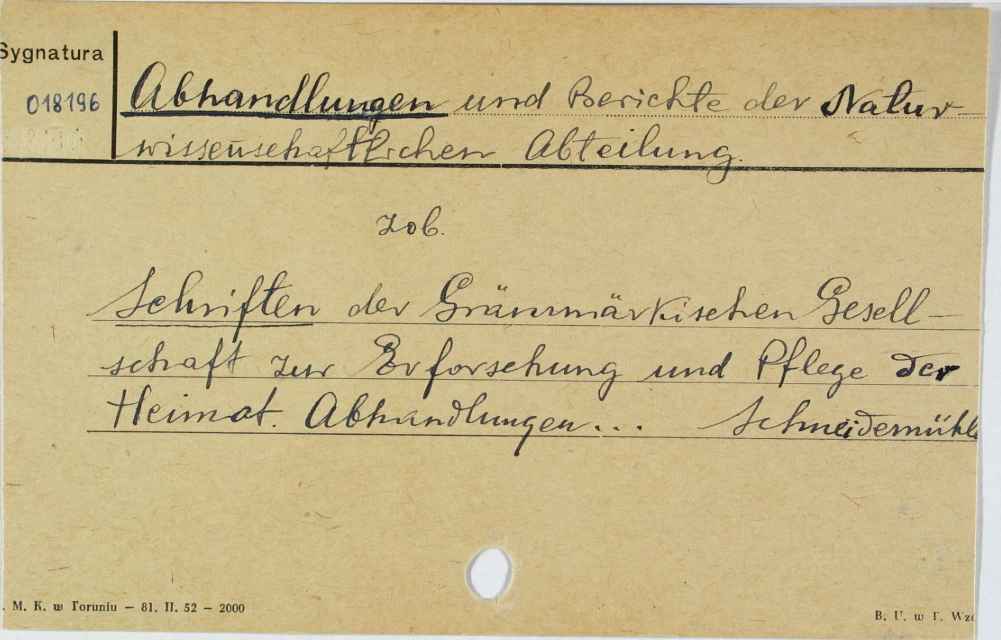 Sygnatura
018196
Abhandlungen und Berichte der Natur-
wissenschaftlichen Abteilung.
zob.
Schriften der Gränmärkischen Gesell-
schaft zur Erforschung und Pflege der
Heimat. Abhandlungen... Schneidemühl
. M. K. w Toruniu – 81. II. 52 – 2000
B. U. w T. Wzo